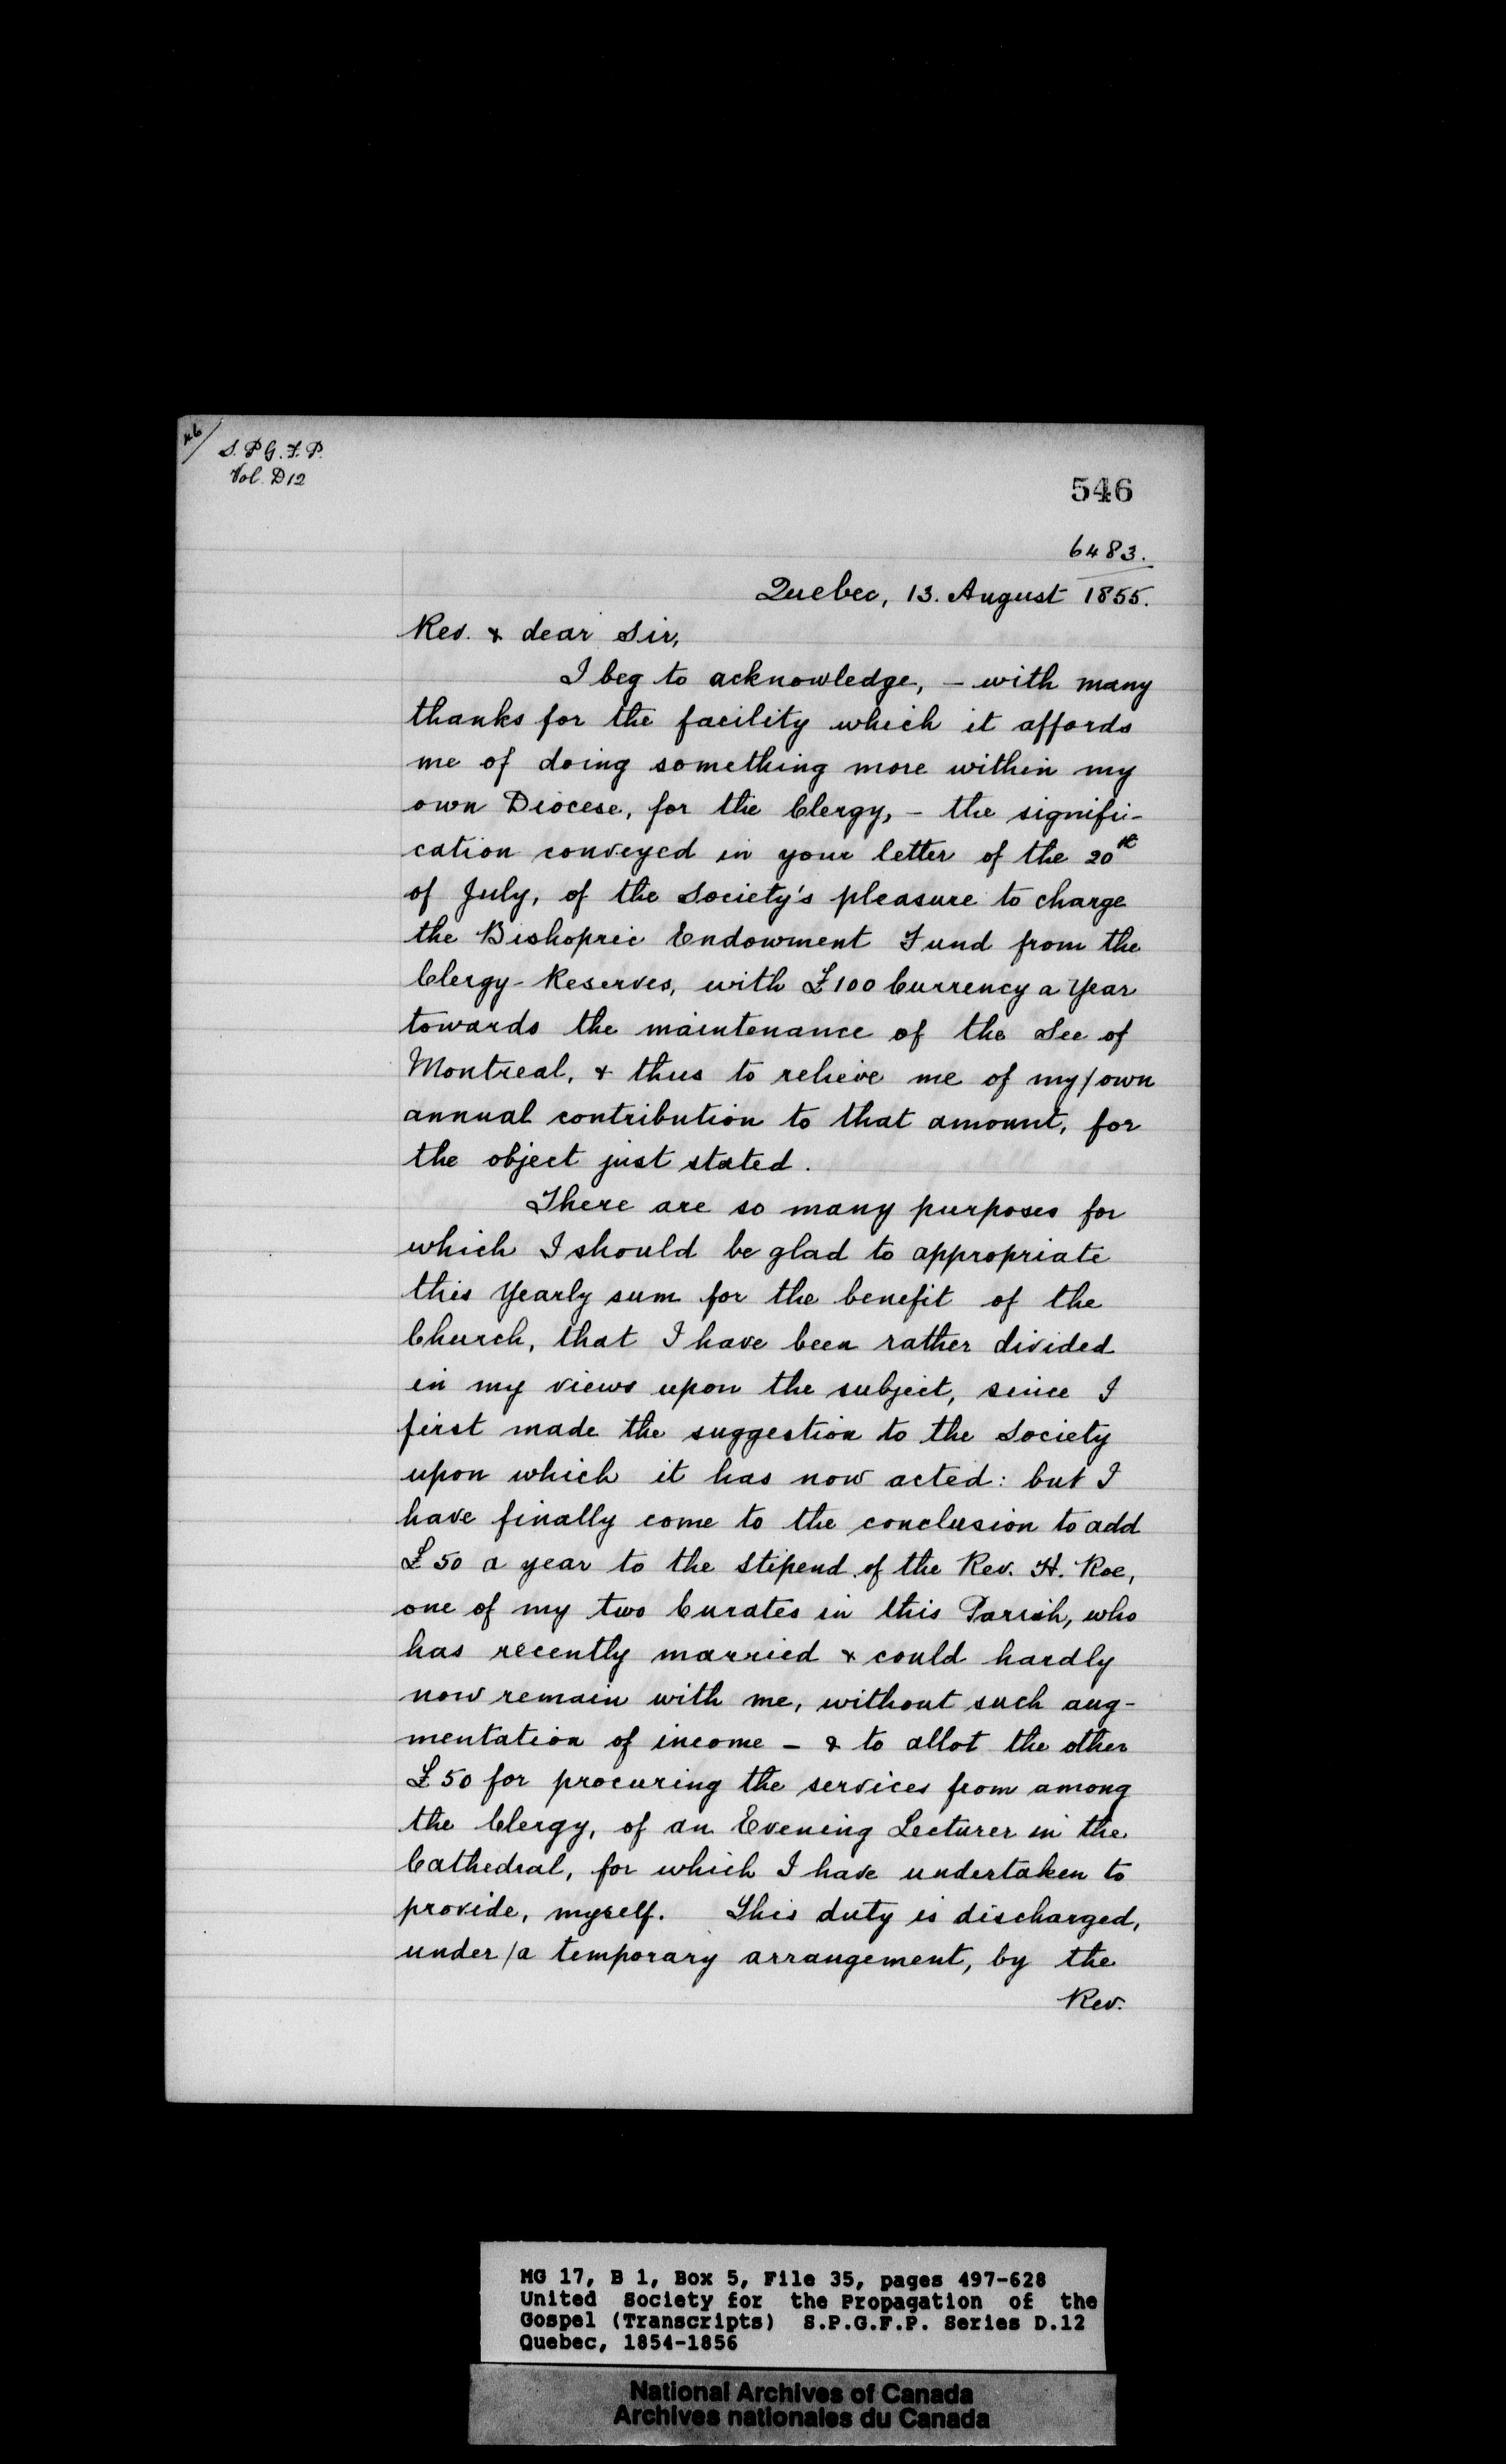 46/
S. P. G. F. P.
Vol. D12
546
6483.
Quebec, 13. August 1855.
Rev. & dear Sir,
I beg to acknowledge, – with many
thanks for the facility which it affords
me of doing something more within my
own Diocese, for the Clergy, – the signifi-
cation conveyed in your letter of the 20th
of July, of the Society's pleasure to charge
the Bishopric Endowment Fund from the
Clergy-Reserves, with £100 Currency a Year
towards the maintenance of the See of
Montreal, & thus to relieve me of my/own
annual contribution to that amount, for
the object just stated.
There are so many purposes for
which I should be glad to appropriate
this Yearly sum for the benefit of the
Church, that I have been rather divided
in my views upon the subject, since I
first made the suggestion to the Society
upon which it has now acted: but I
have finally come to the conclusion to add
£50 a year to the Stipend of the Rev. H. Roe,
one of my two Curates in this Parish, who
has recently married & could hardly
now remain with me, without such aug-
mentation of income – & to allot the other
£50 for procuring the services from among
the Clergy, of an Evening Lecturer in the
Cathedral, for which I have undertaken to
provide, myself. This duty is discharged,
under/a temporary arrangement, by the
Rev.
MG 17, B 1, Box 5, File 35, pages 497-628
United Society for the Propagation of the
Gospel (Transcripts) S.P.G.F.P. Series D.12
Quebec, 1854-1856
National Archives of Canada
Archives nationales du Canada